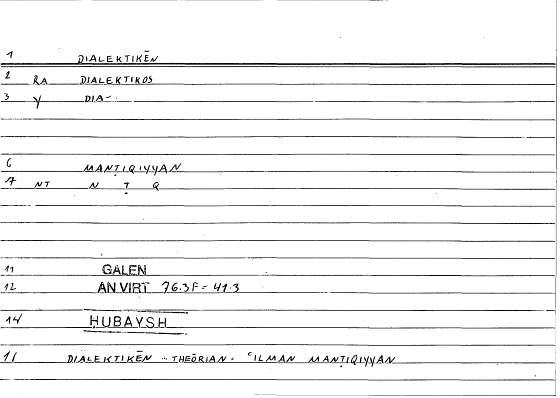 1 DIALEKTIKĒN
2 RA DIALEKTIKOS
3 Y DIA-
6 MANṬIQIYYAN
7 NT N Ṭ Q
11 GALEN
12 AN VIRT 76.3F = 41.3
14 ḤUBAYSH
11 DIALEKTIKĒN - THEŌRIAN - ʿILMAN MANṬIQIYYAN